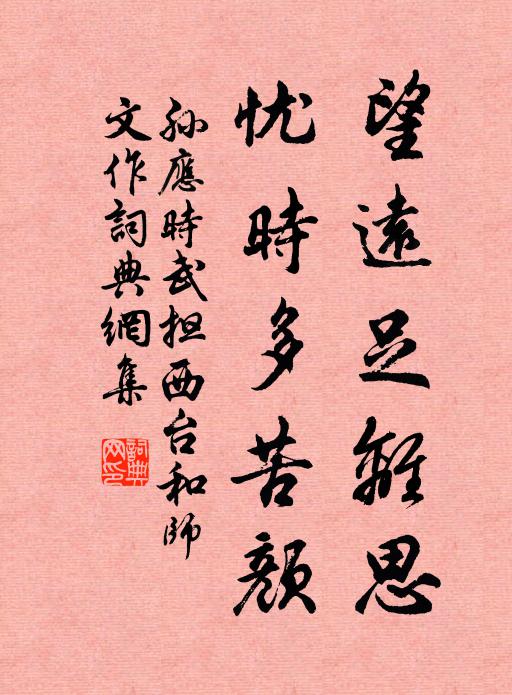 望遠足離思
忧時多苦顏
孙應時武担西台和師
文作詞典網集
詞典
网印